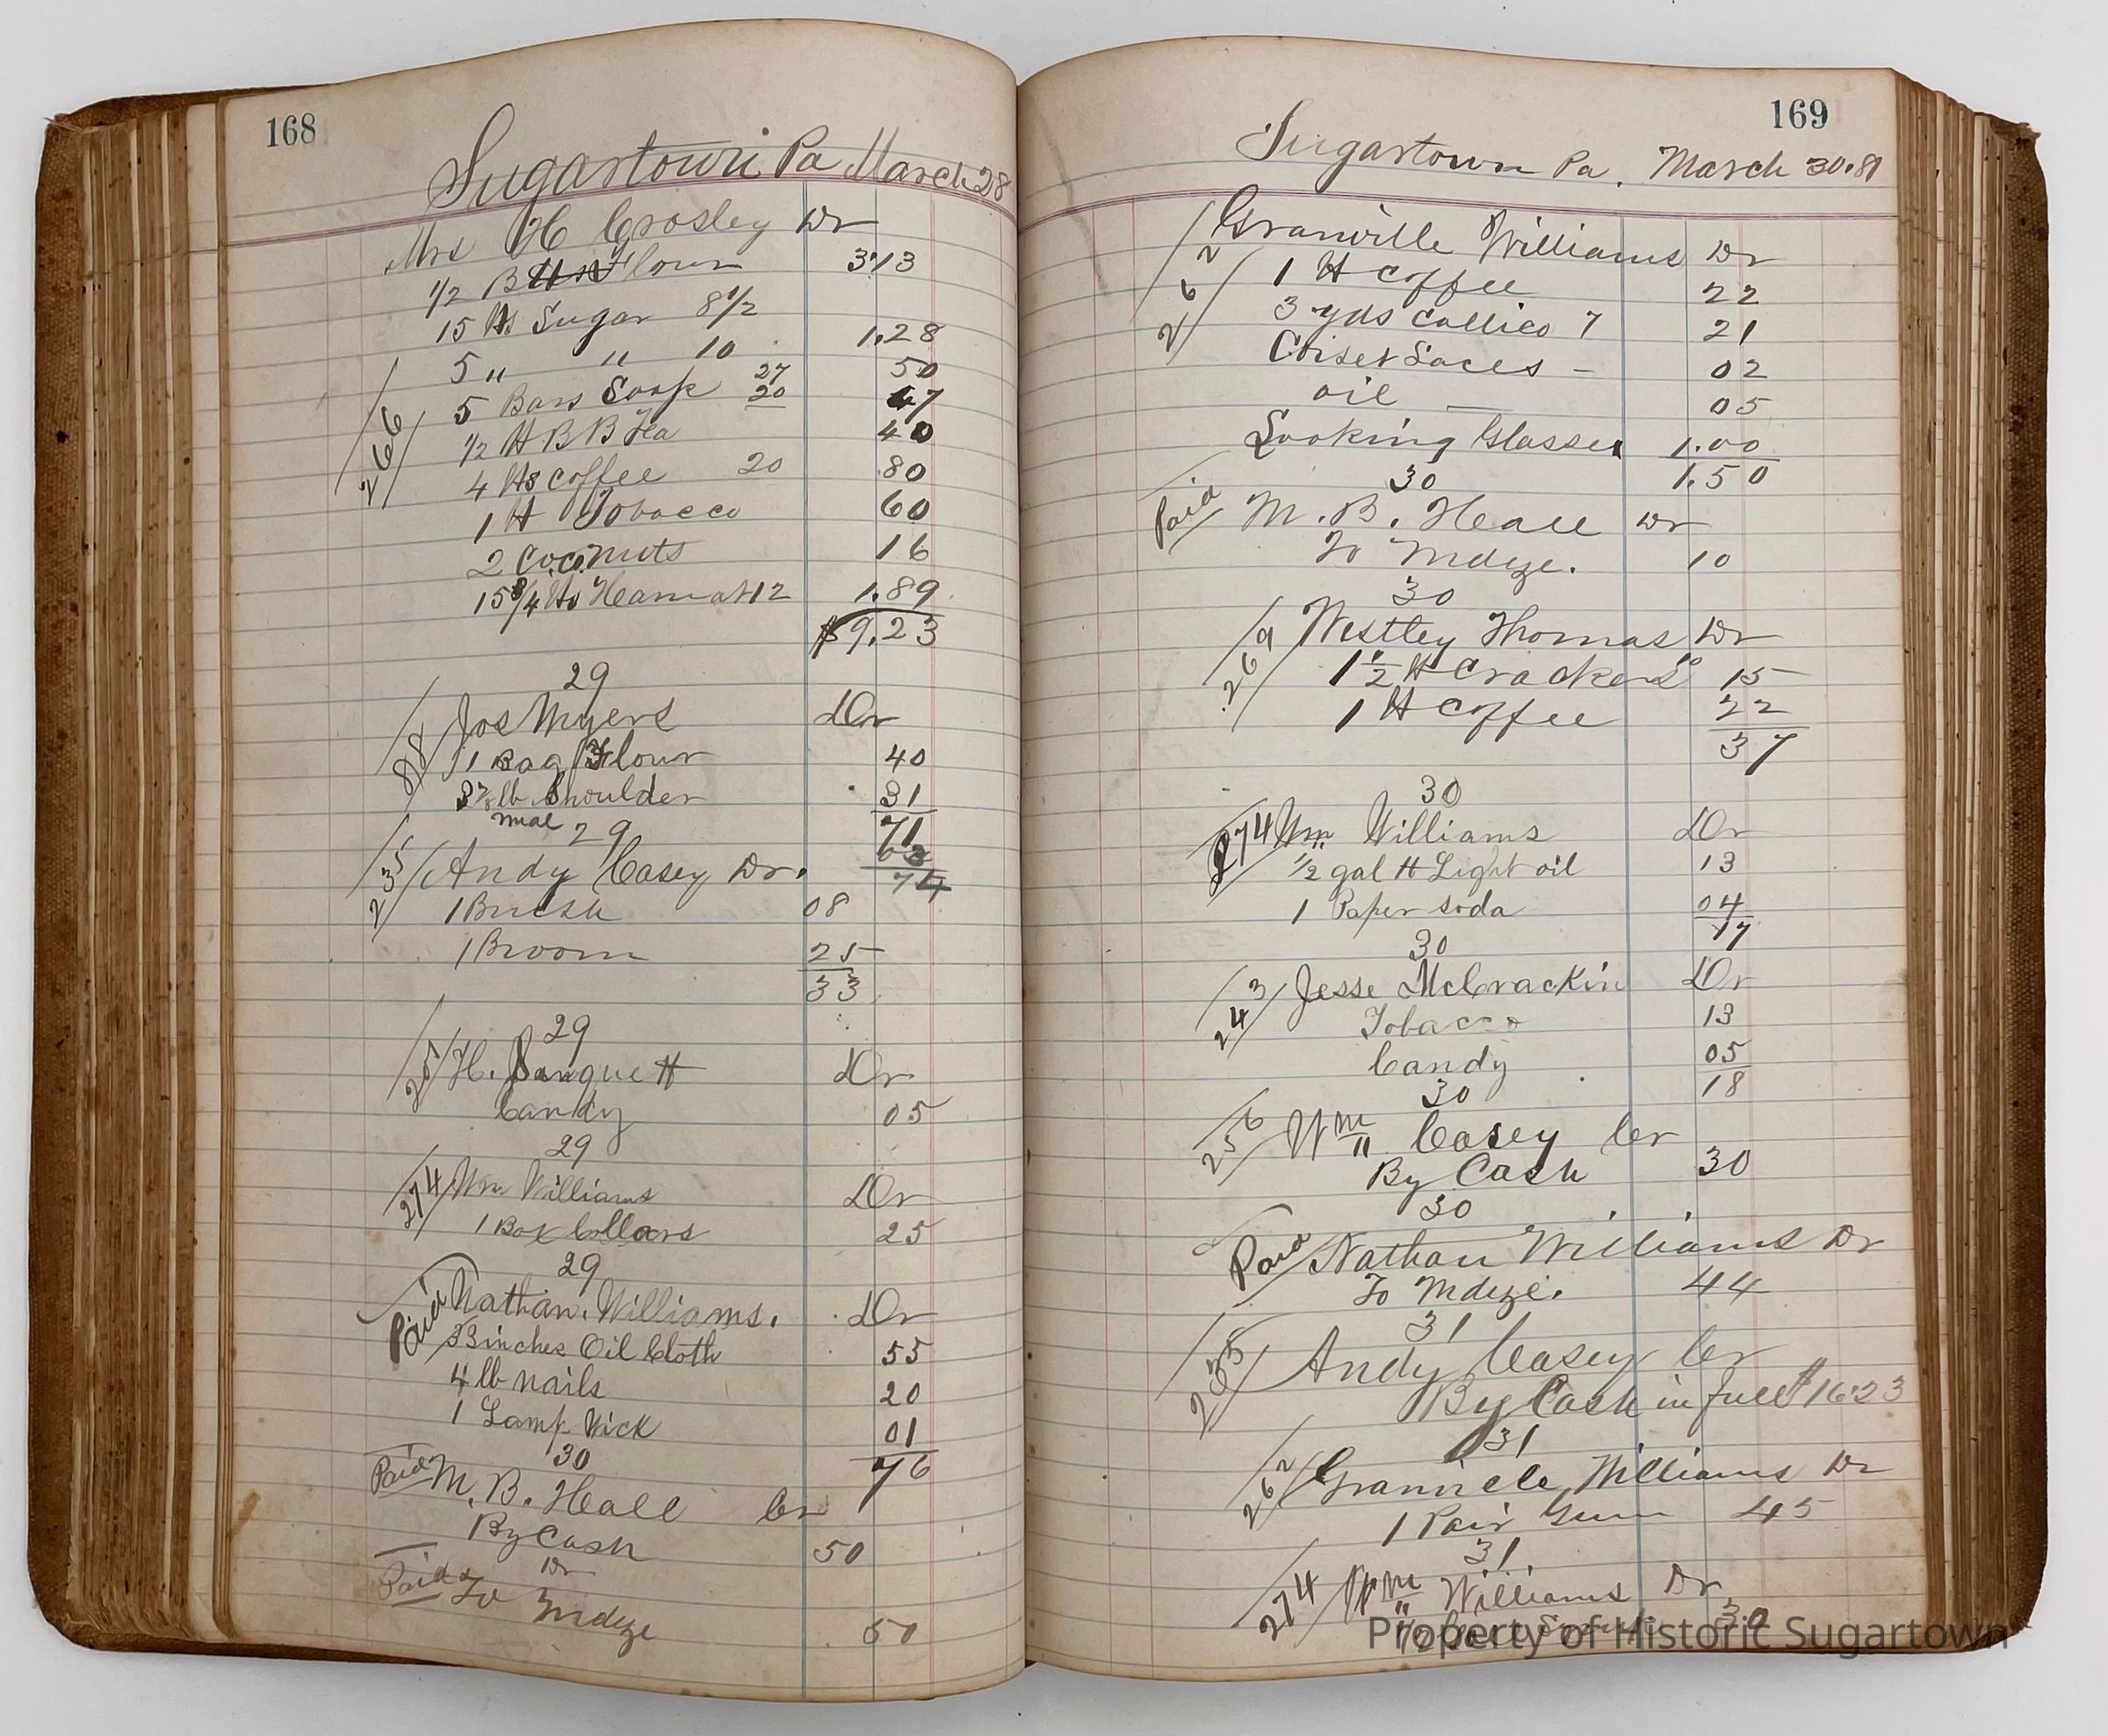 168
Sugartown Pa March 28
Mrs H Crosley Dr
1/2 B Flour 3.13
15 lbs Sugar 8 1/2 1.28
5 " " 10 50
5 Bars Soap 27 20 47
1/2 lb B B Tea 40
4 lbs Coffee 20 80
1 lb Tobacco 60
2 Coconuts 16
15 3/4 lbs Ham at 12 1.89
266
$9.23
29
Jos Myers Dr
88
1 Bag Flour 40
lb Shoulder 31
meal 29 71
235 Andy Casey Dr. 74
1 Brush 08
1 Broom 25
33
29
251 H. Dr
Candy 05
29
274 Wm Williams Dr
1 Box Collars 25
29
Paid Nathan. Williams. Dr
inches Oil Cloth 55
4 lb nails 20
1 Lamp Wick 01
30 76
Paid M. B. Heall Cr
By Cash 50
Dr
Paid To Mdze 50
169
Sugartown Pa. March 30.81
262 Granville Williams Dr
1 lb Coffee 22
3 yds Callico 7 21
Corset Laces - 02
oil 05
Looking Glasses 1.00
30 1.50
Paid M. B. Heall Dr
To Mdze. 10
30
269 Westley Thomas Dr
1 1/2 lb Crackers 10 15
1 lb Coffee 22
37
30
274 Wm Williams Dr
1/2 gal H Light oil 13
1 Paper soda 04
30 17
243 Jesse McCrackin Dr
Tobacco 13
Candy 05
30 18
256 Wm Casey Cr
By Cash 30
30
Paid Nathan Williams Dr
To Mdze. 44
31
Andy Casey Cr
By Cash in full $16.23
31
262 Granvele Williams Dr
1 Pair Gum 45
31.
274 Wm Williams Dr
1/2 30
Property of Historic Sugartown